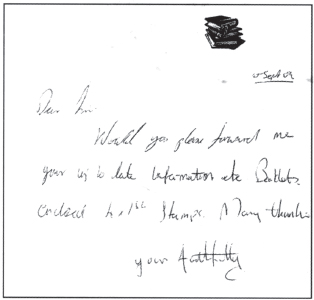 Dear Sir.
Would you please forward me
your up to date Information etc Booklets.
Enclosed 4 x 1st Stamps. Many thanks
yours faithfully